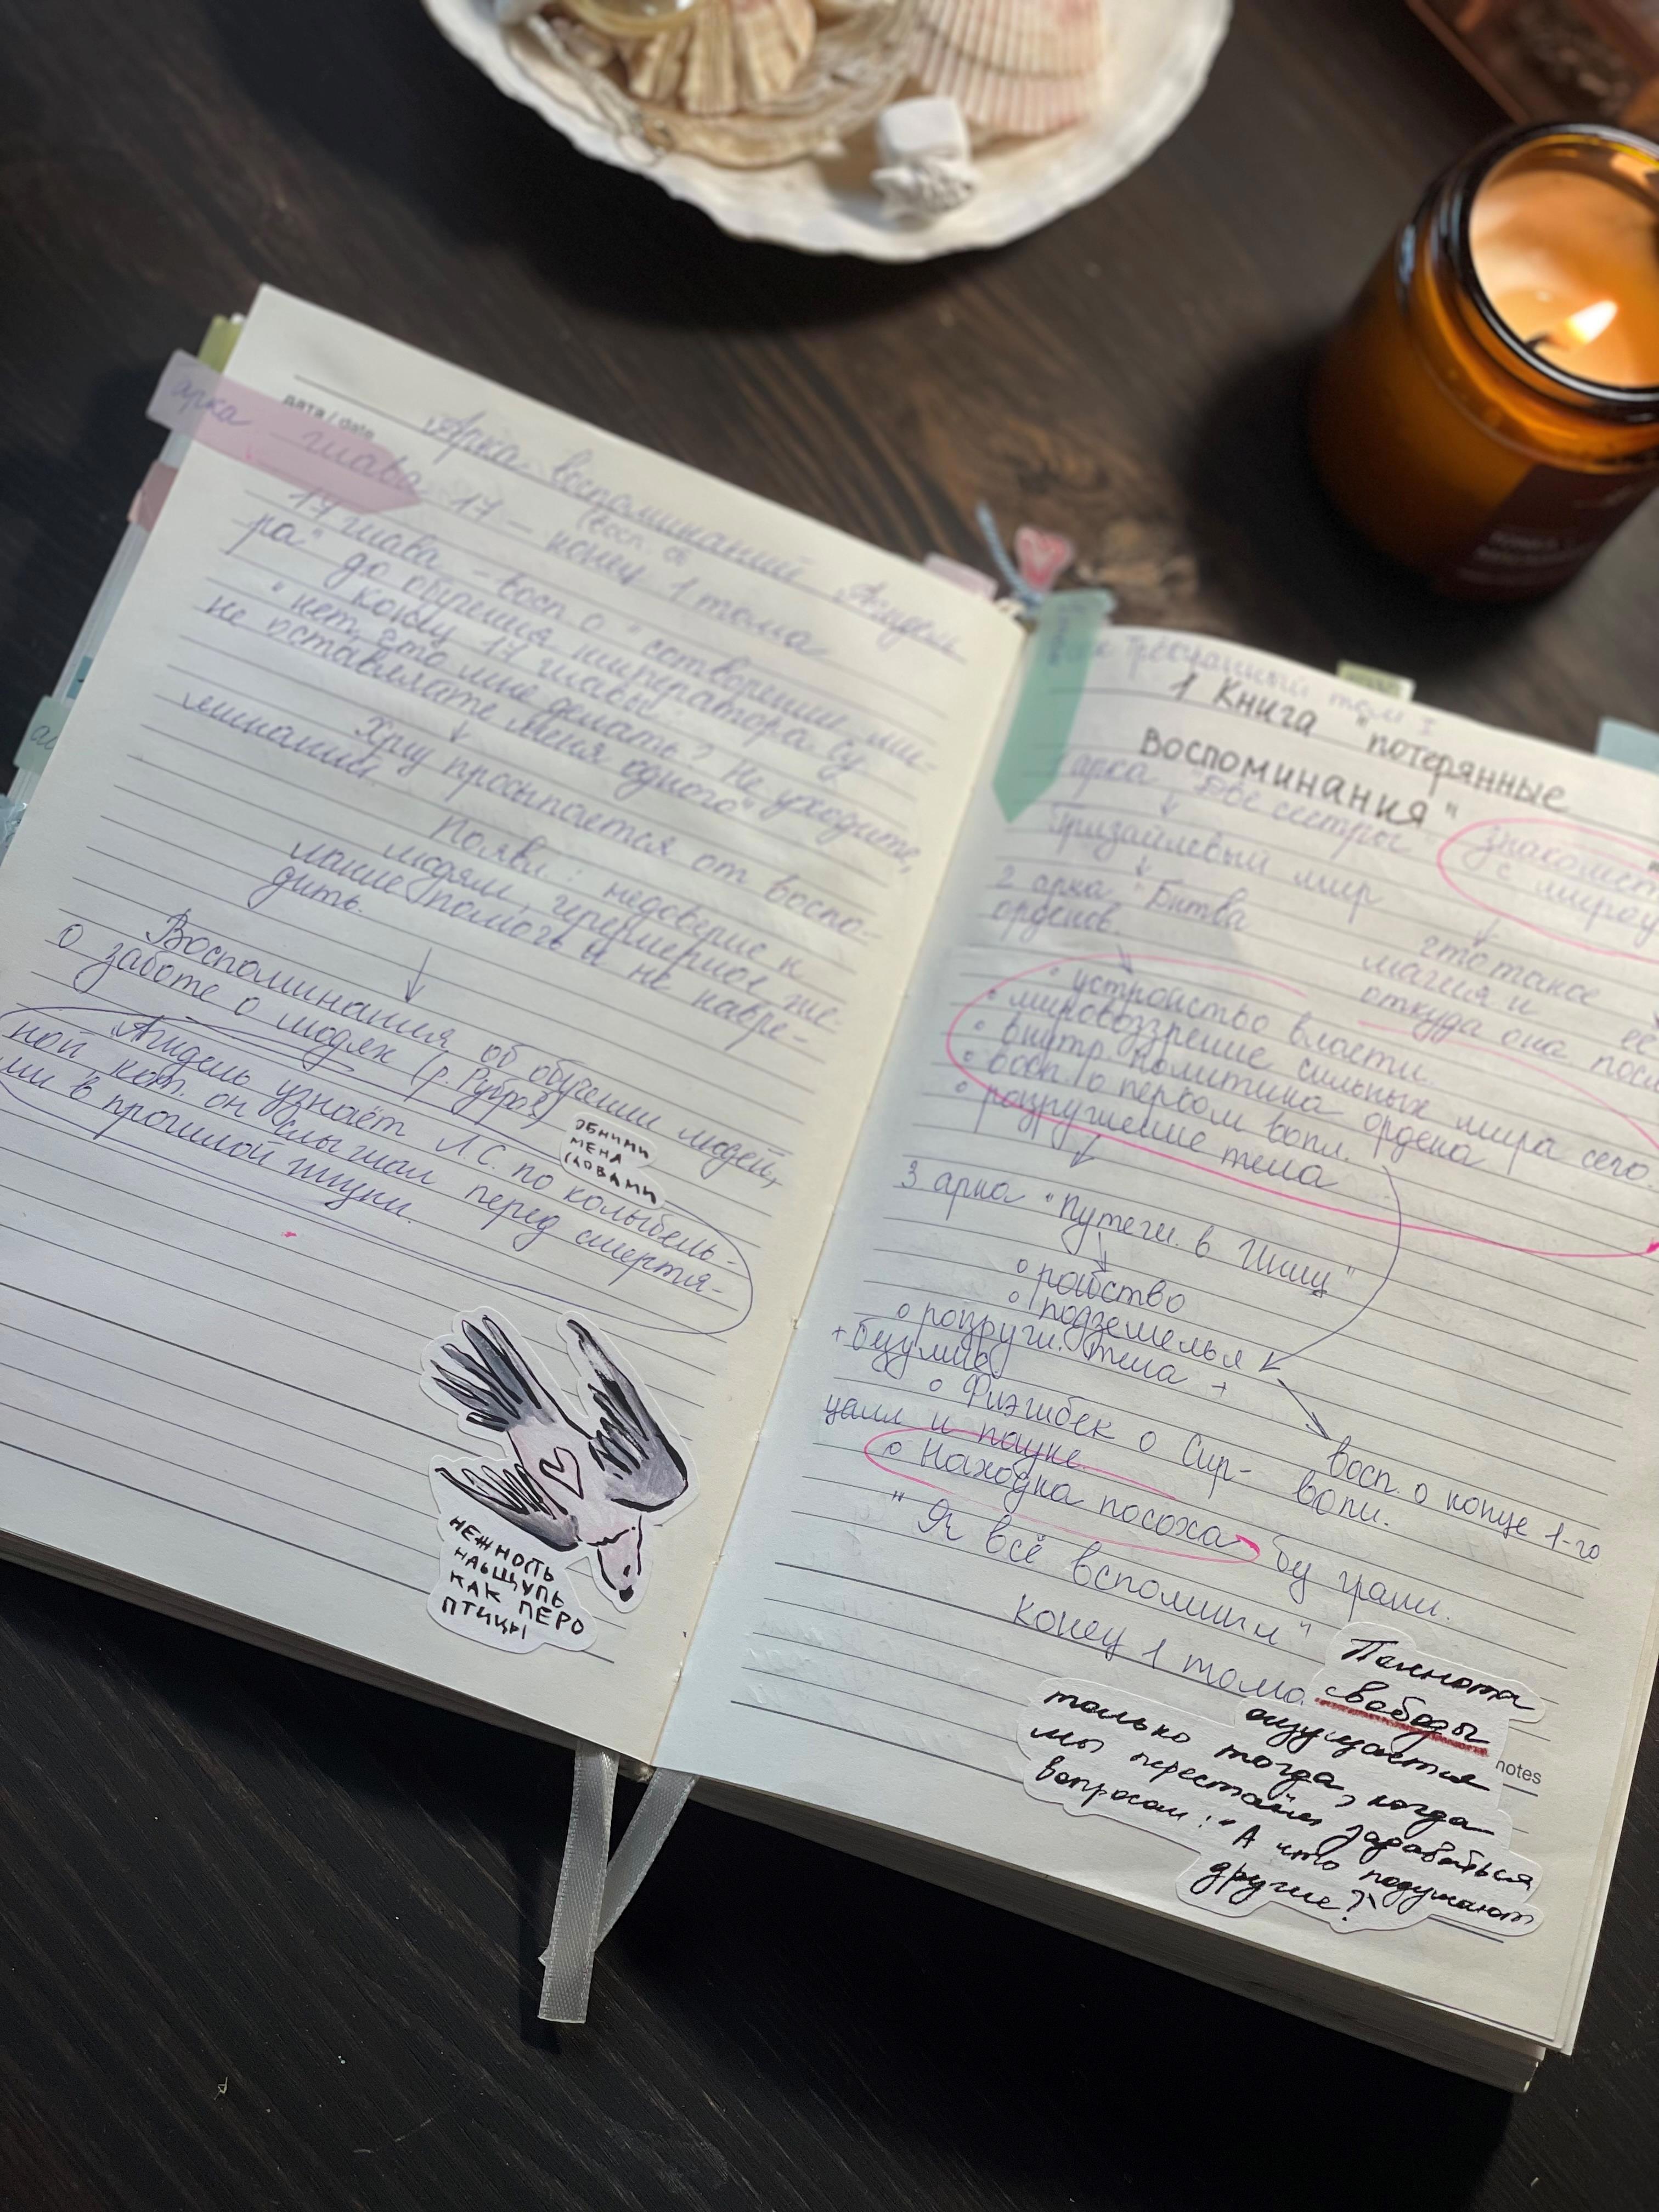 арка
дата / date
Арка воспоминаний Агидель
(восп. св
глава 17 – конец 1 тома
17 глава – восп о "сотворении ми-
ра" до обучения императора Су
к концу 17 главы
"нет, что мне делать? Не уходите,
не оставляйте меня одного"
Хлу просыпается от воспо-
минаний.
Появл: недоверие к
людям, чрезмерное же-
лание помочь и не навре-
дить.
Воспоминания об обучении людей,
о заботе о людях (р. Рубра?)
Агидель узнаёт Л.С. по колыбель-
ной кот. он слышал перед смертя-
ми в прошлой жизни.
ОБНИМИ
МЕНЯ
СЛОВАМИ
НЕЖНОСТЬ
НАЩУПЬ
КАК ПЕРО
ПТИЦЫ
том I
1 Книга "потерянные
Воспоминания"
арка "Две сестры"
Гризайлевый мир
знакомст
с миром
2 арка "Битва
орденов.
что такое
магия и её
откуда она посл
• устройство власти.
• мировоззрение сильных мира сего.
• внутр. политика ордена
• восп. о первом вопл.
• разрушение тела
3 арка "Путеш. в Инищ"
о рабство
о подземелья
о разруш. тела +
+ безумие
о Флэшбек о Сир-
цалл и пауке.
восп. о конце 1-го
вопл.
о Находка посоха бу грани.
"Я всё вспомнил"
конец 1 тома.
Полнота
свободы
ощущается
только тогда, когда
мы перестаём задаваться
вопросом: "А что подумают
другие?"
notes